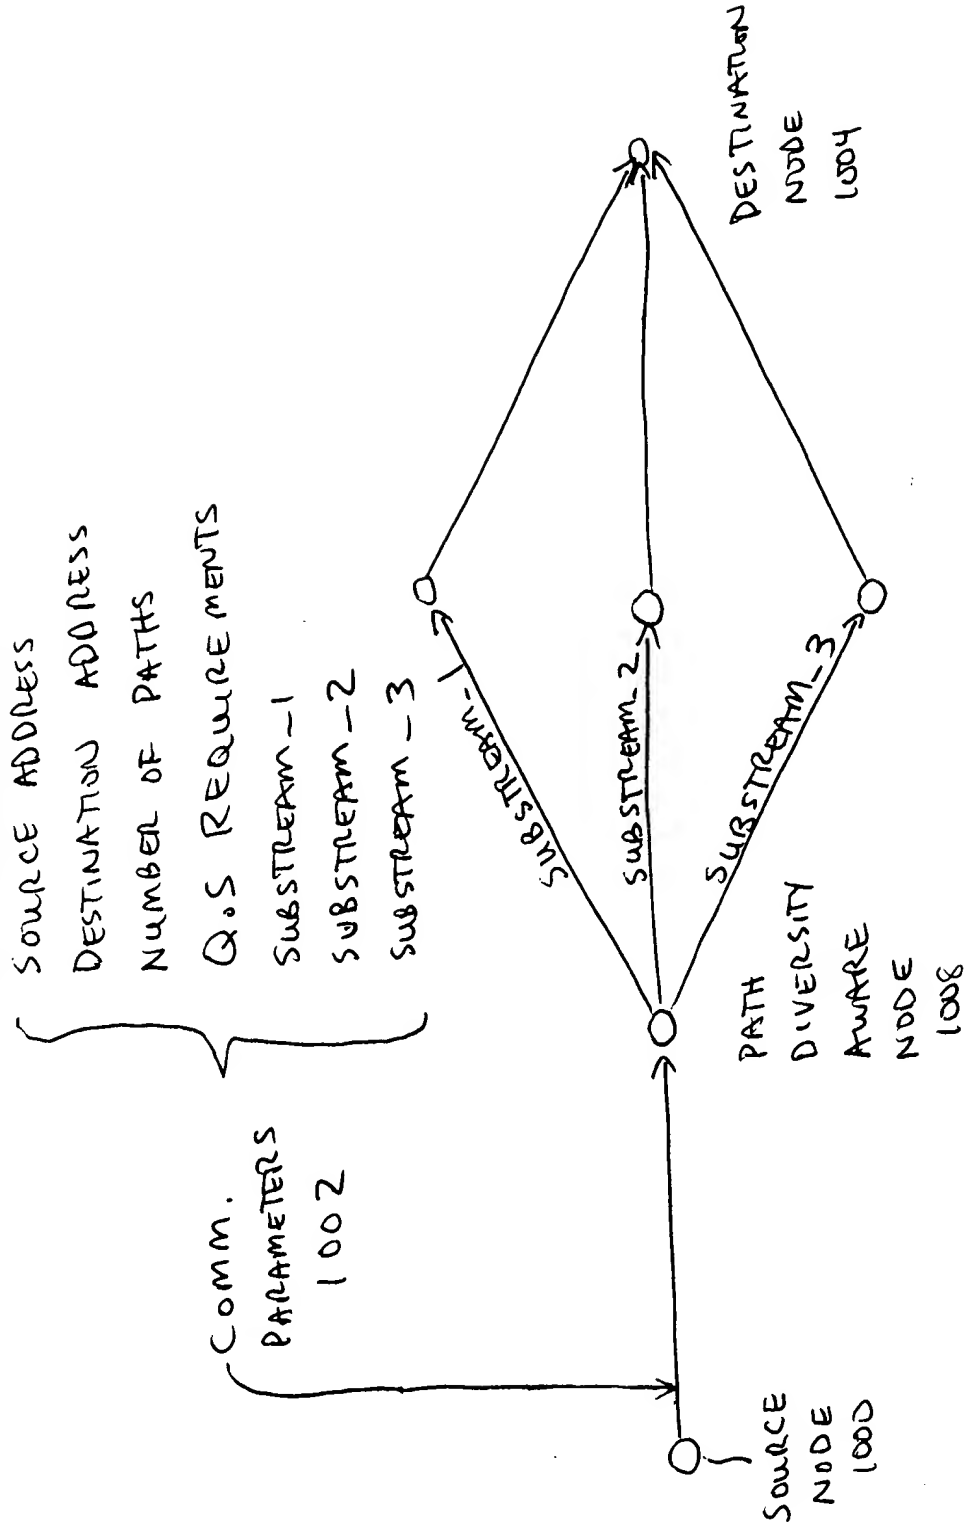 SOURCE ADDRESS
DESTINATION ADDRESS
NUMBER OF PATHS
QoS REQUIREMENTS
SUBSTREAM_1
SUBSTREAM_2
SUBSTREAM_3
COMM.
PARAMETERS
1002
SUBSTREAM_1
SUBSTREAM_2
SUBSTREAM_3
SOURCE
NODE
1000
PATH
DIVERSITY
AWARE
NODE
1008
DESTINATION
NODE
1004